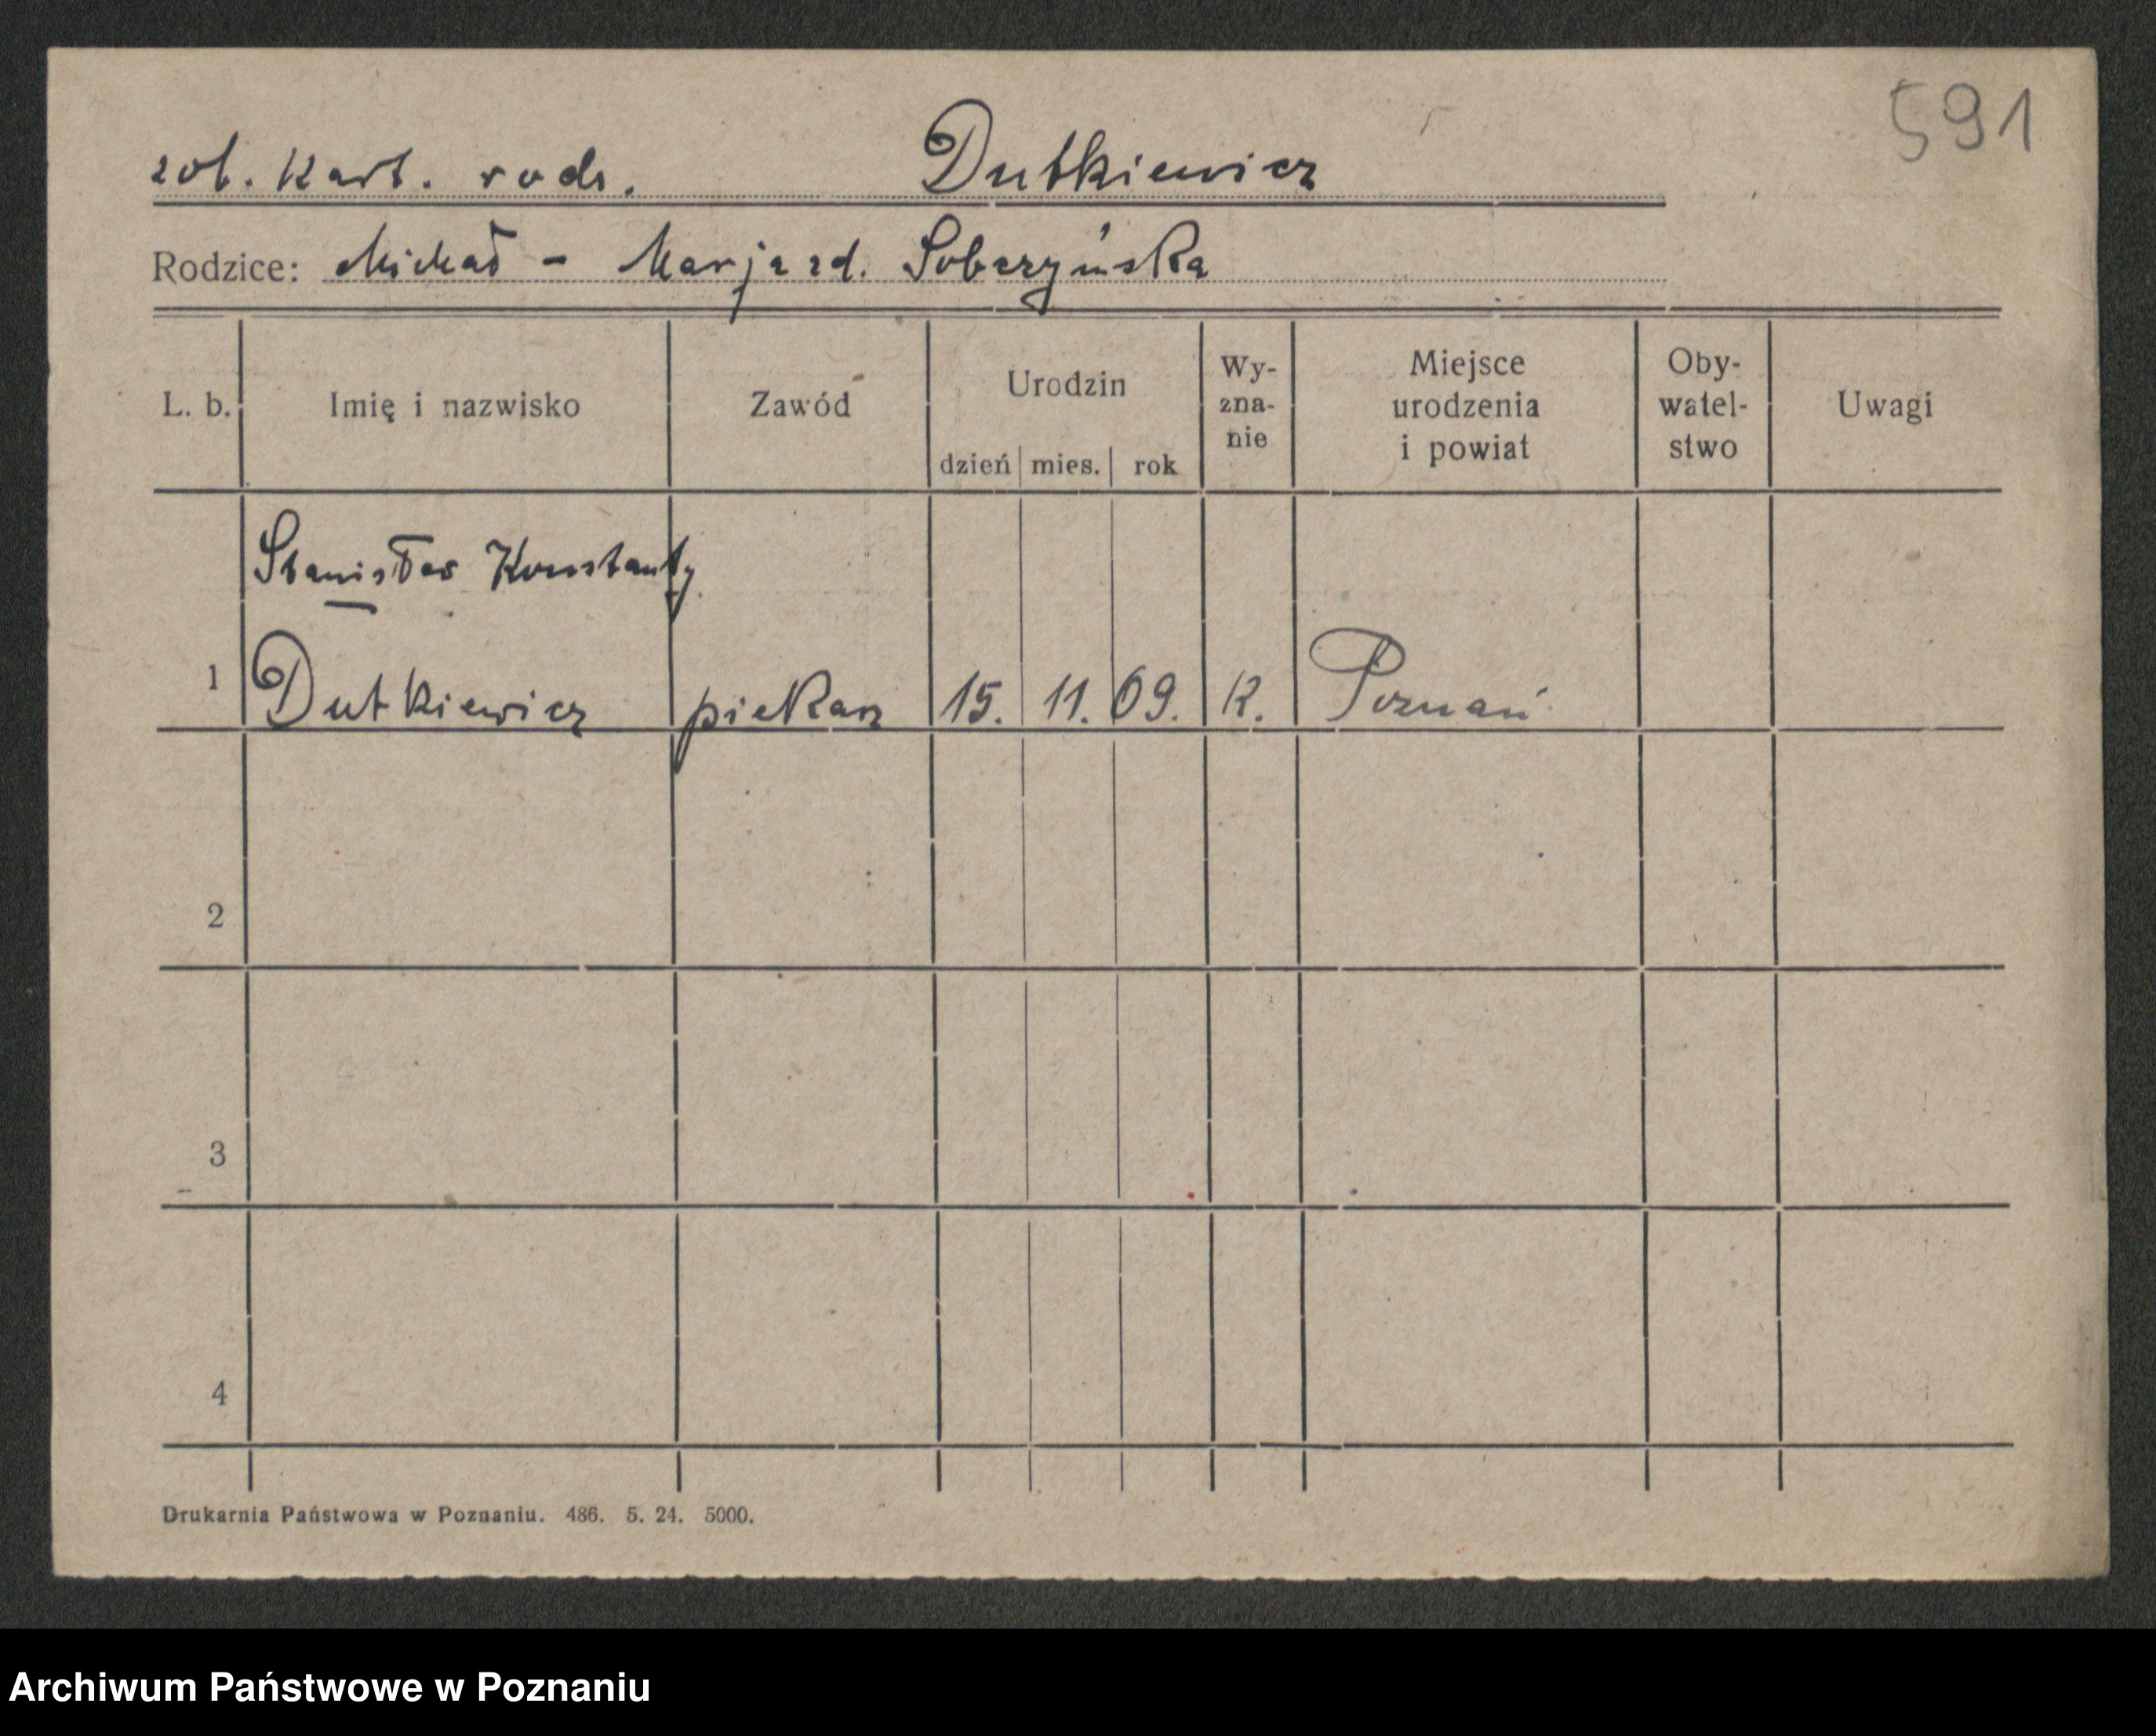 591
zob. Kart. rodz. Dutkiewicz
Rodzice: Michał - Marja zd. Sobczyńska
L. b. Imię i nazwisko Zawód Urodzin dzień mies. rok Wy-zna-nie Miejsce urodzenia i powiat Oby-watel-stwo Uwagi
Stanisław Konstanty
1 Dutkiewicz piekarz 15. 11. 09. K. Poznań
2
3
4
Drukarnia Państwowa w Poznaniu. 486. 5. 24. 5000.
Archiwum Państwowe w Poznaniu